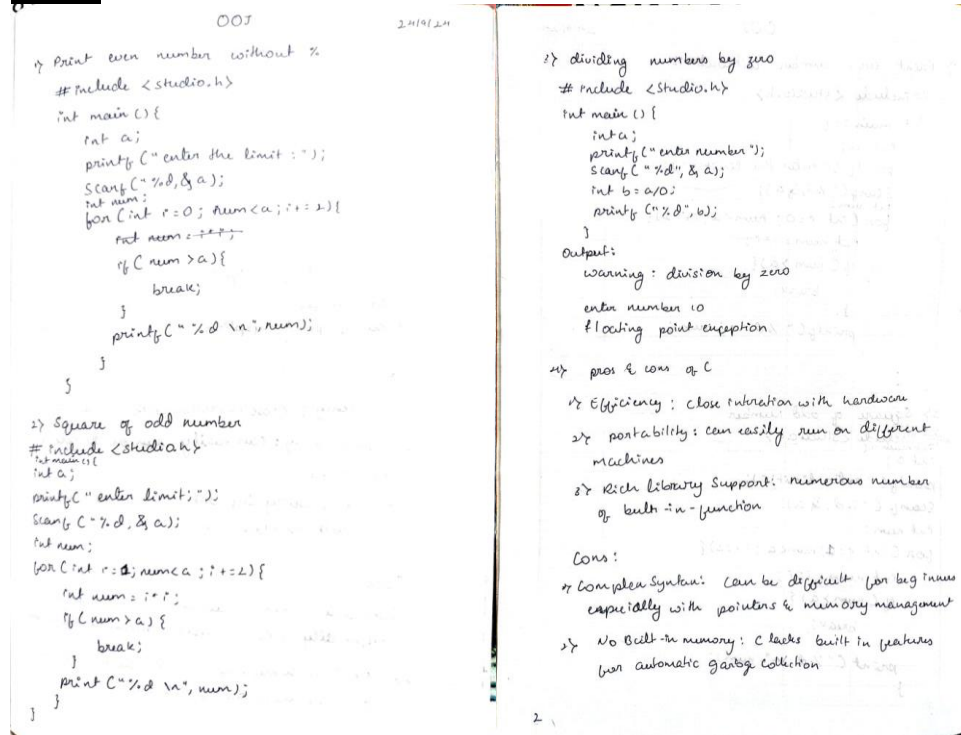 OOJ
24/9/24
1> Print even number without %
# include <studio.h>
int main () {
int a;
printf (" enter the limit : ");
scanf (" %d, & a);
int num;
for (int i = 0 ; num < a ; i + = 2) {
int num = i * i ;
if ( num > a) {
break;
}
printf (" %d \n", num);
}
}
2> Square of odd number
# include <studio.h>
int main () {
int a;
printf (" enter limit; ");
scanf (" %d, & a);
int num ;
for ( int i = 1; num < a ; i + = 2) {
int num = i * i ;
if ( num > a) {
break;
}
print (" %d \n", num);
}
}
3> dividing numbers by zero
# include <studio.h>
int main () {
int a;
printf (" enter number ");
scanf (" %d", & a);
int b = a/0;
printf (" %d", b);
}
Output:
warning : division by zero
enter number 10
floating point exception
4> pros & cons of C
1> Efficiency : close intration with hardware
2> portability : can easily run on different
machines
3> Rich library Support: numerous number
of built-in-function
Cons :
1> Complex Syntax: can be difficult for beginnes
especially with pointers & memory management
2> No Built-in memory : C lacks built in features
for automatic garbge collection
2